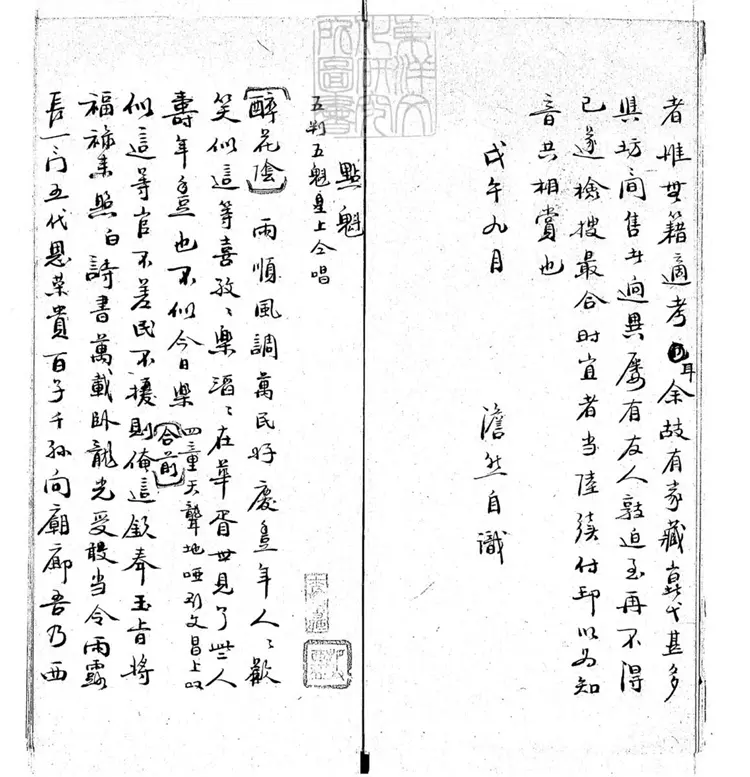 者惟無籍適考耳余故有家藏崑弋甚多
與坊間售者迥異屢有友人敦迫至再不得
已遂檢搜最合時宜者当陸續付印以為知
音共相賞也
戊午九月
澹然自識
點魁
五判五魁皇上仝唱
醉花陰 雨順風調萬民好慶豊年人〻歡
笑似這等喜孜〻樂滔〻在華胥世見了些人
壽年豊也不似今日樂 合前 四童天聾地啞引文昌上以
似這等官不差民不擾則俺這欽奉玉旨將
福祿來照白詩書萬載臥龍光受職当今雨露
長一门五代恩榮貴百子千孫向廟廊吾乃西
東洋文化研究所圖書